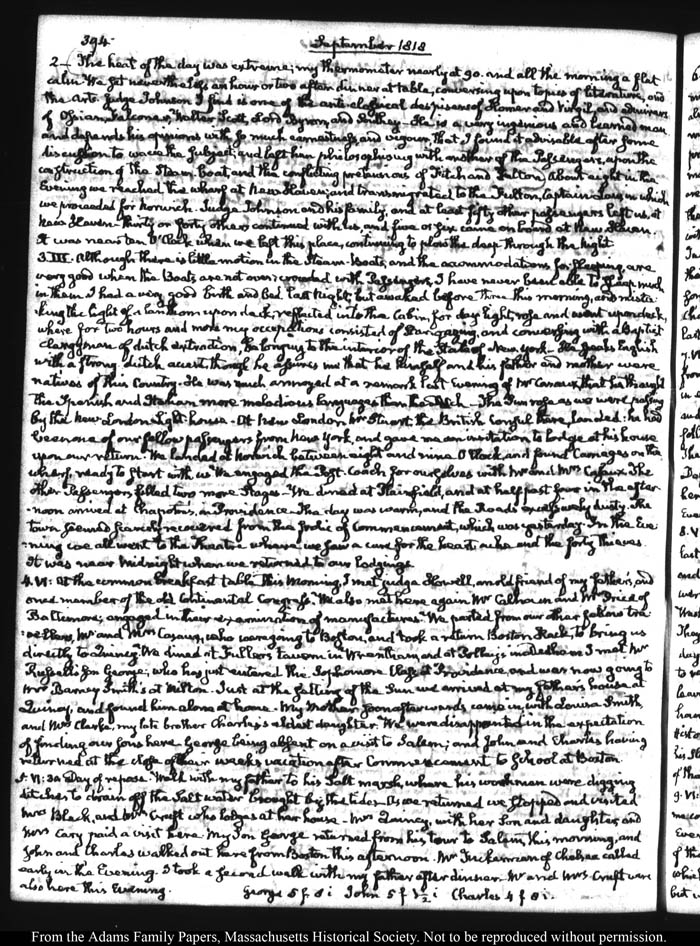 394
September 1818
2— The heat of the day was extreme; my thermometer nearly at 90. and all the morning a flat
calm. We sat nevertheless an hour or two after dinner at table, conversing upon topics of literature, and
the arts. Judge Johnson I find is one of the anti-classical despisers of Homer and Virgil, and admirers
of Ossian, Falconer, Walter Scott, Lord Byron, and Southey. He is a very ingenious and learned man
and defends his opinions with so much earnestness and vigour, that I found it advisable after some
discussion to waive the subject, and left him philosophising with another of the Passengers, upon the
construction of the Steam boat and the conflicting pretensions of Fitch and Fulton. About eight in the
Evening we reached the wharf at New Haven; and transmigrated to the Fulton, Captain Law, in which
we proceeded for Norwich. Judge Johnson and his family, and at least fifty other passengers left us, at
New Haven. Thirty or forty others continued with us, and five or six came on board at New Haven.
It was near ten O'Clock when we left this place, continuing to plow the deep through the night.
3. III. Although there is little motion in the Steam-Boats, and the accommodations for sleeping, are
very good when the Boats are not over-crowded with Passengers, I have never been able to sleep much
in them. I had a very good birth and Bed last Night, but awaked before three this morning, and mista-
king the light of a lanthorn upon deck, reflected into the Cabin, for day light, rose and went upon deck,
where for two hours and more my occupations consisted of Star gazing, and conversing with a Baptist
clergyman of dutch extraction, belonging to the interior of the State of New York. He speaks English
with a strong dutch accent though he assures me that he himself and his father and mother were
natives of this Country. He was much annoyed at a remark last Evening of Mr Cazaux, that he thought
the Spanish and Italian more melodious languages than the Dutch. The Sun rose as we were passing
by the New-London Light-house. At New London Mr Stuart the British Consul there, landed: he had
been one of our fellow passengers from New York, and gave me an invitation to lodge at his house
upon our return. We landed at Norwich between eight and nine O'Clock, and found Carriages on the
wharf, ready to start with us. We engaged the Post-Coach for ourselves with Mr and Mrs Cazaux. The
other Passengers filled two more Stages. We dined at Plainfield, and at half past four in the after-
-noon arrived at Chapotin's, in Providence. The day was warm, and the Roads excessively dusty. The
town seemed scarcely recovered from the frolic of Commencement, which was yesterday. In the Eve-
-ning we all went to the Theatre where we saw a cure for the heart ache and the forty thieves.
It was near Midnight when we returned to our lodgings.
4. VI: At the common breakfast table this Morning, I met judge Howell, an old friend of my father's, and
once member of the old Continental Congress. We also met here again Mr Calhoun and Mr Price of
Baltimore, engaged in their examination of manufactures. We parted from our other fellow tra-
-vellers, Mr and Mrs Cazaux, who were going to Boston, and took a return Boston Hack, to bring us
directly to Quincy. We dined at Fuller's tavern in Wrentham, and at Polley's in Dedham I met Mr
Russell's Son George, who has just entered the Sophomore Class at Providence, and was now going to
Mrs Barney Smith's at Milton. Just at the falling of the Sun we arrived at my father's house at
Quincy, and found him alone at home. My Mother soon afterwards came in, with Louisa Smith,
and Mrs Clarke, my late brother Charles's eldest daughter. We were disappointed in the expectation
of finding our sons here, George being absent on a visit to Salem; and John and Charles having
returned at the close of their weeks vacation after Commencement to School at Boston.
5. VI: 30 Day of repose. Walk with my father to his Salt marsh, where his workmen were digging
ditches to drain off the Salt water brought by the tides. As we returned we stopped and visited
Mrs Black, and Mrs Cruft who lodges at her house. Mrs Quincy, with her Son and daughter, and
Mrs Cary paid a visit here. My Son George returned from his tour to Salem, this morning, and
John and Charles walked out here from Boston this afternoon. Mr Tuckerman of Chelsea called
early in the Evening. I took a second walk with my father after dinner. Mr and Mrs Cruft were
also here this Evening. George 5 f 8 i John 5 f 1½ i Charles 4 f 8 i.
From the Adams Family Papers, Massachusetts Historical Society. Not to be reproduced without permission.